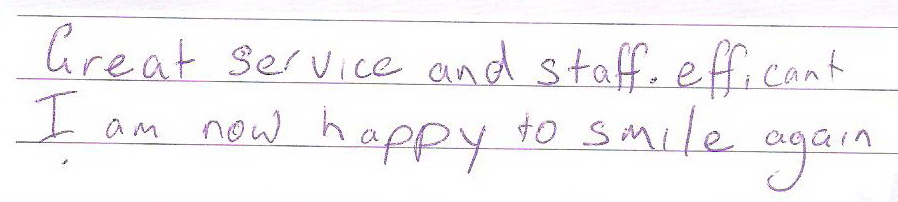 Great service and staff. efficant
I am now happy to smile again